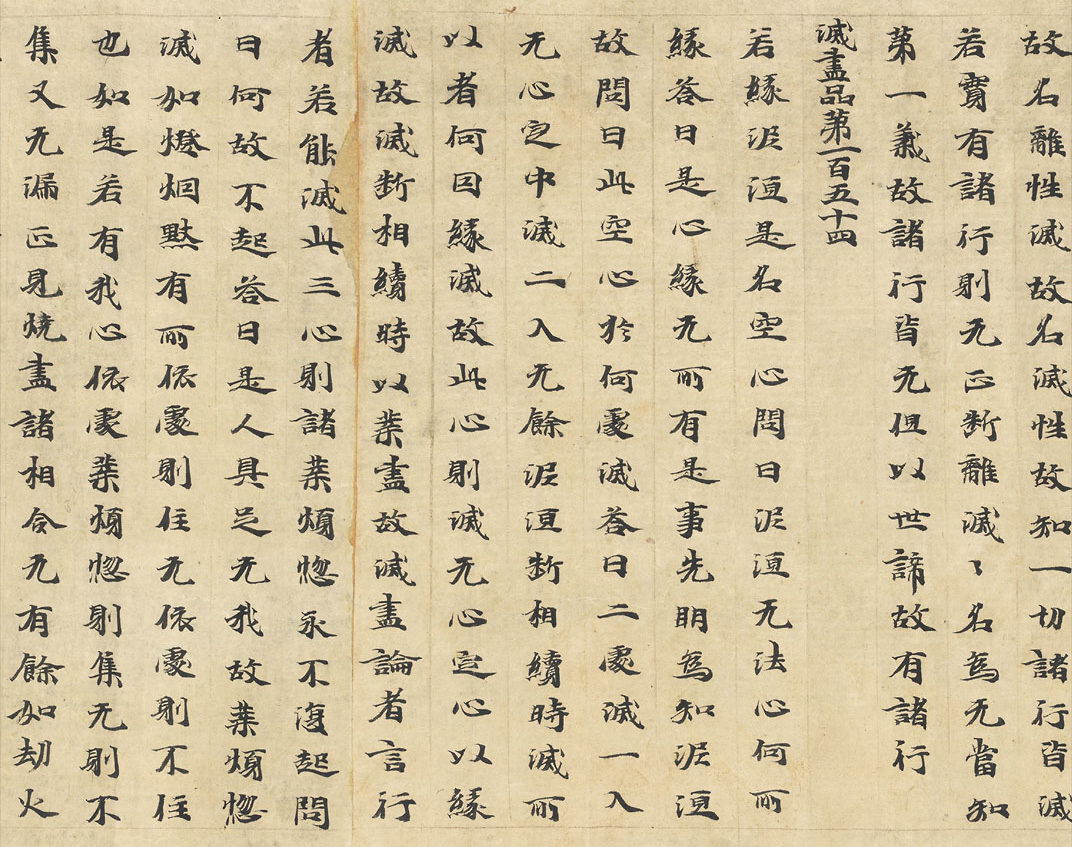 故名離性滅故名滅性故知一切諸行皆滅
若實有諸行則无正斷離滅〻名為无當知
第一義故諸行皆无但以世諦故有諸行
滅盡品第一百五十四
若緣泥洹是名空心問曰泥洹无法心何所
緣答曰是心緣无所有是事先明為知泥洹
故問曰此空心於何處滅答曰二處滅一入
无心定中滅二入无餘泥洹斷相續時滅所
以者何因緣滅故此心則滅无心定心以緣
滅故滅斷相續時以業盡故滅盡論者言行
者若能滅此三心則諸業煩惱永不復起問
曰何故不起答曰是人具足无我故業煩惱
滅如燈烟炎有所依處則住无依處則不住
也如是若有我心依處業煩惱則集无則不
集又无漏正見燒盡諸相令无有餘如劫火